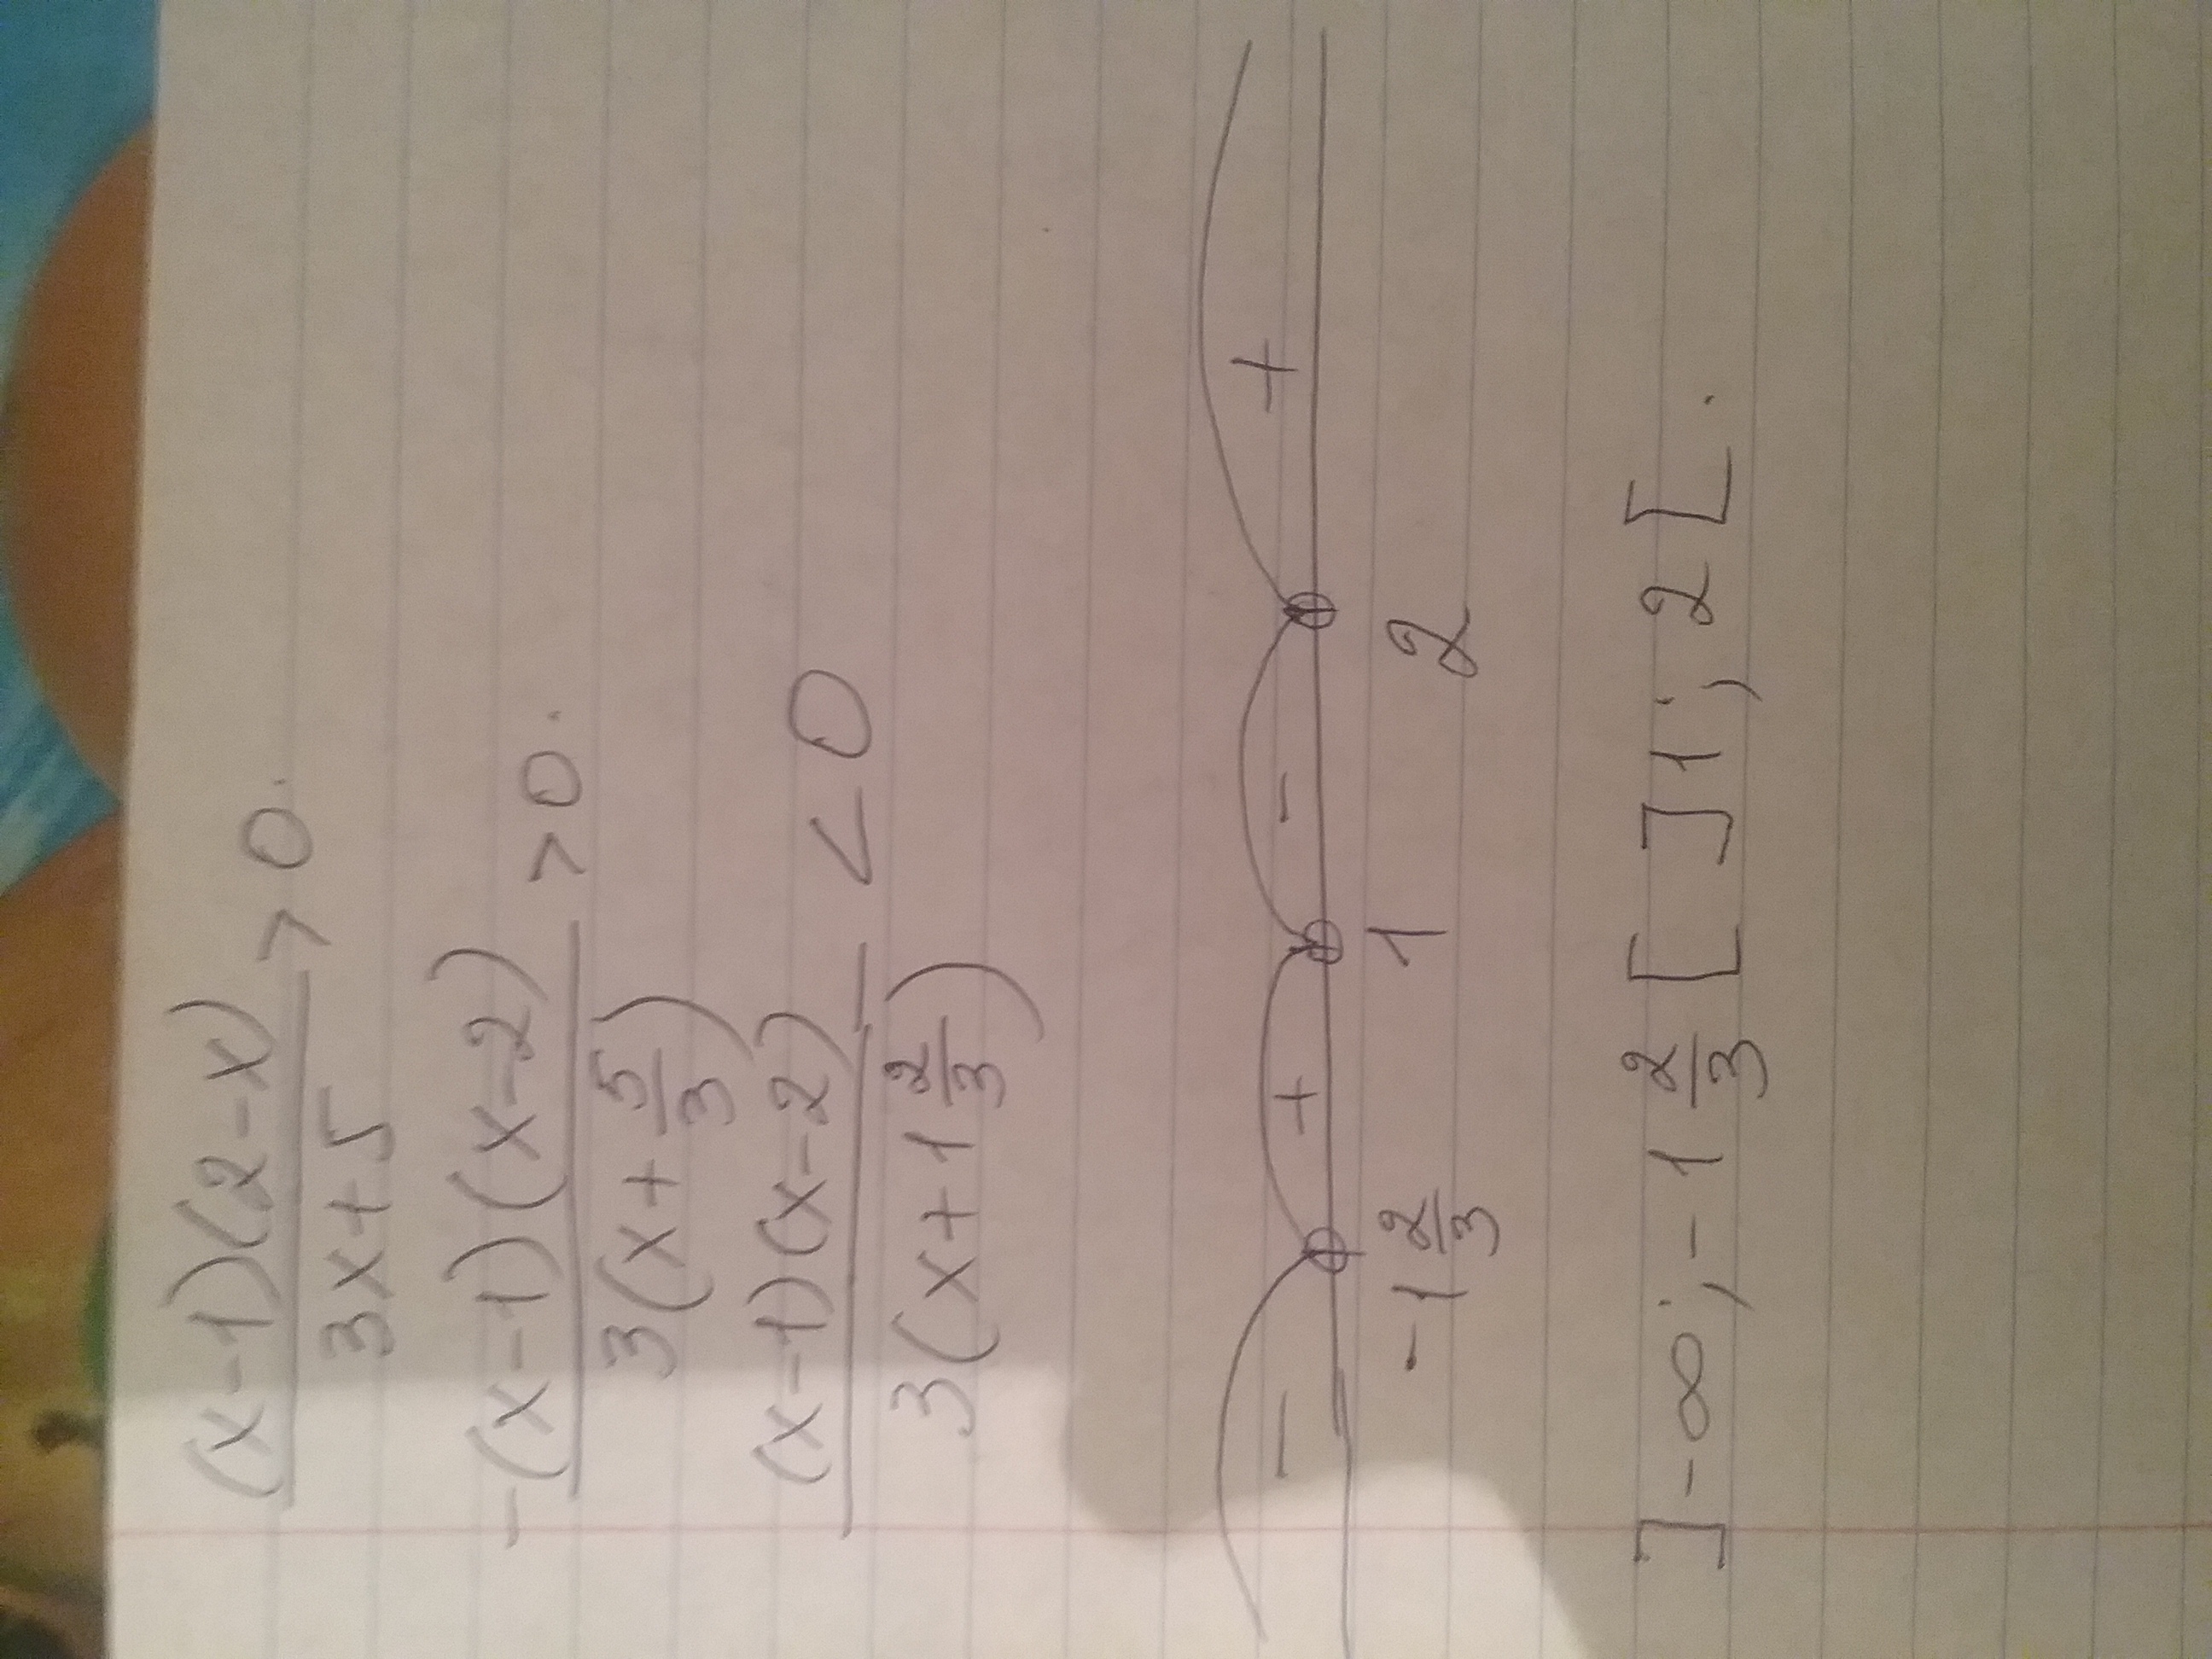 (x-1)(2-x)/3x+5 > 0.
-(x-1)(x-2)/3(x+5/3) > 0.
(x-1)(x-2)/3(x+1 2/3) < 0
- + - +
-1 2/3 1 2
]-∞; -1 2/3[ ]1; 2[.